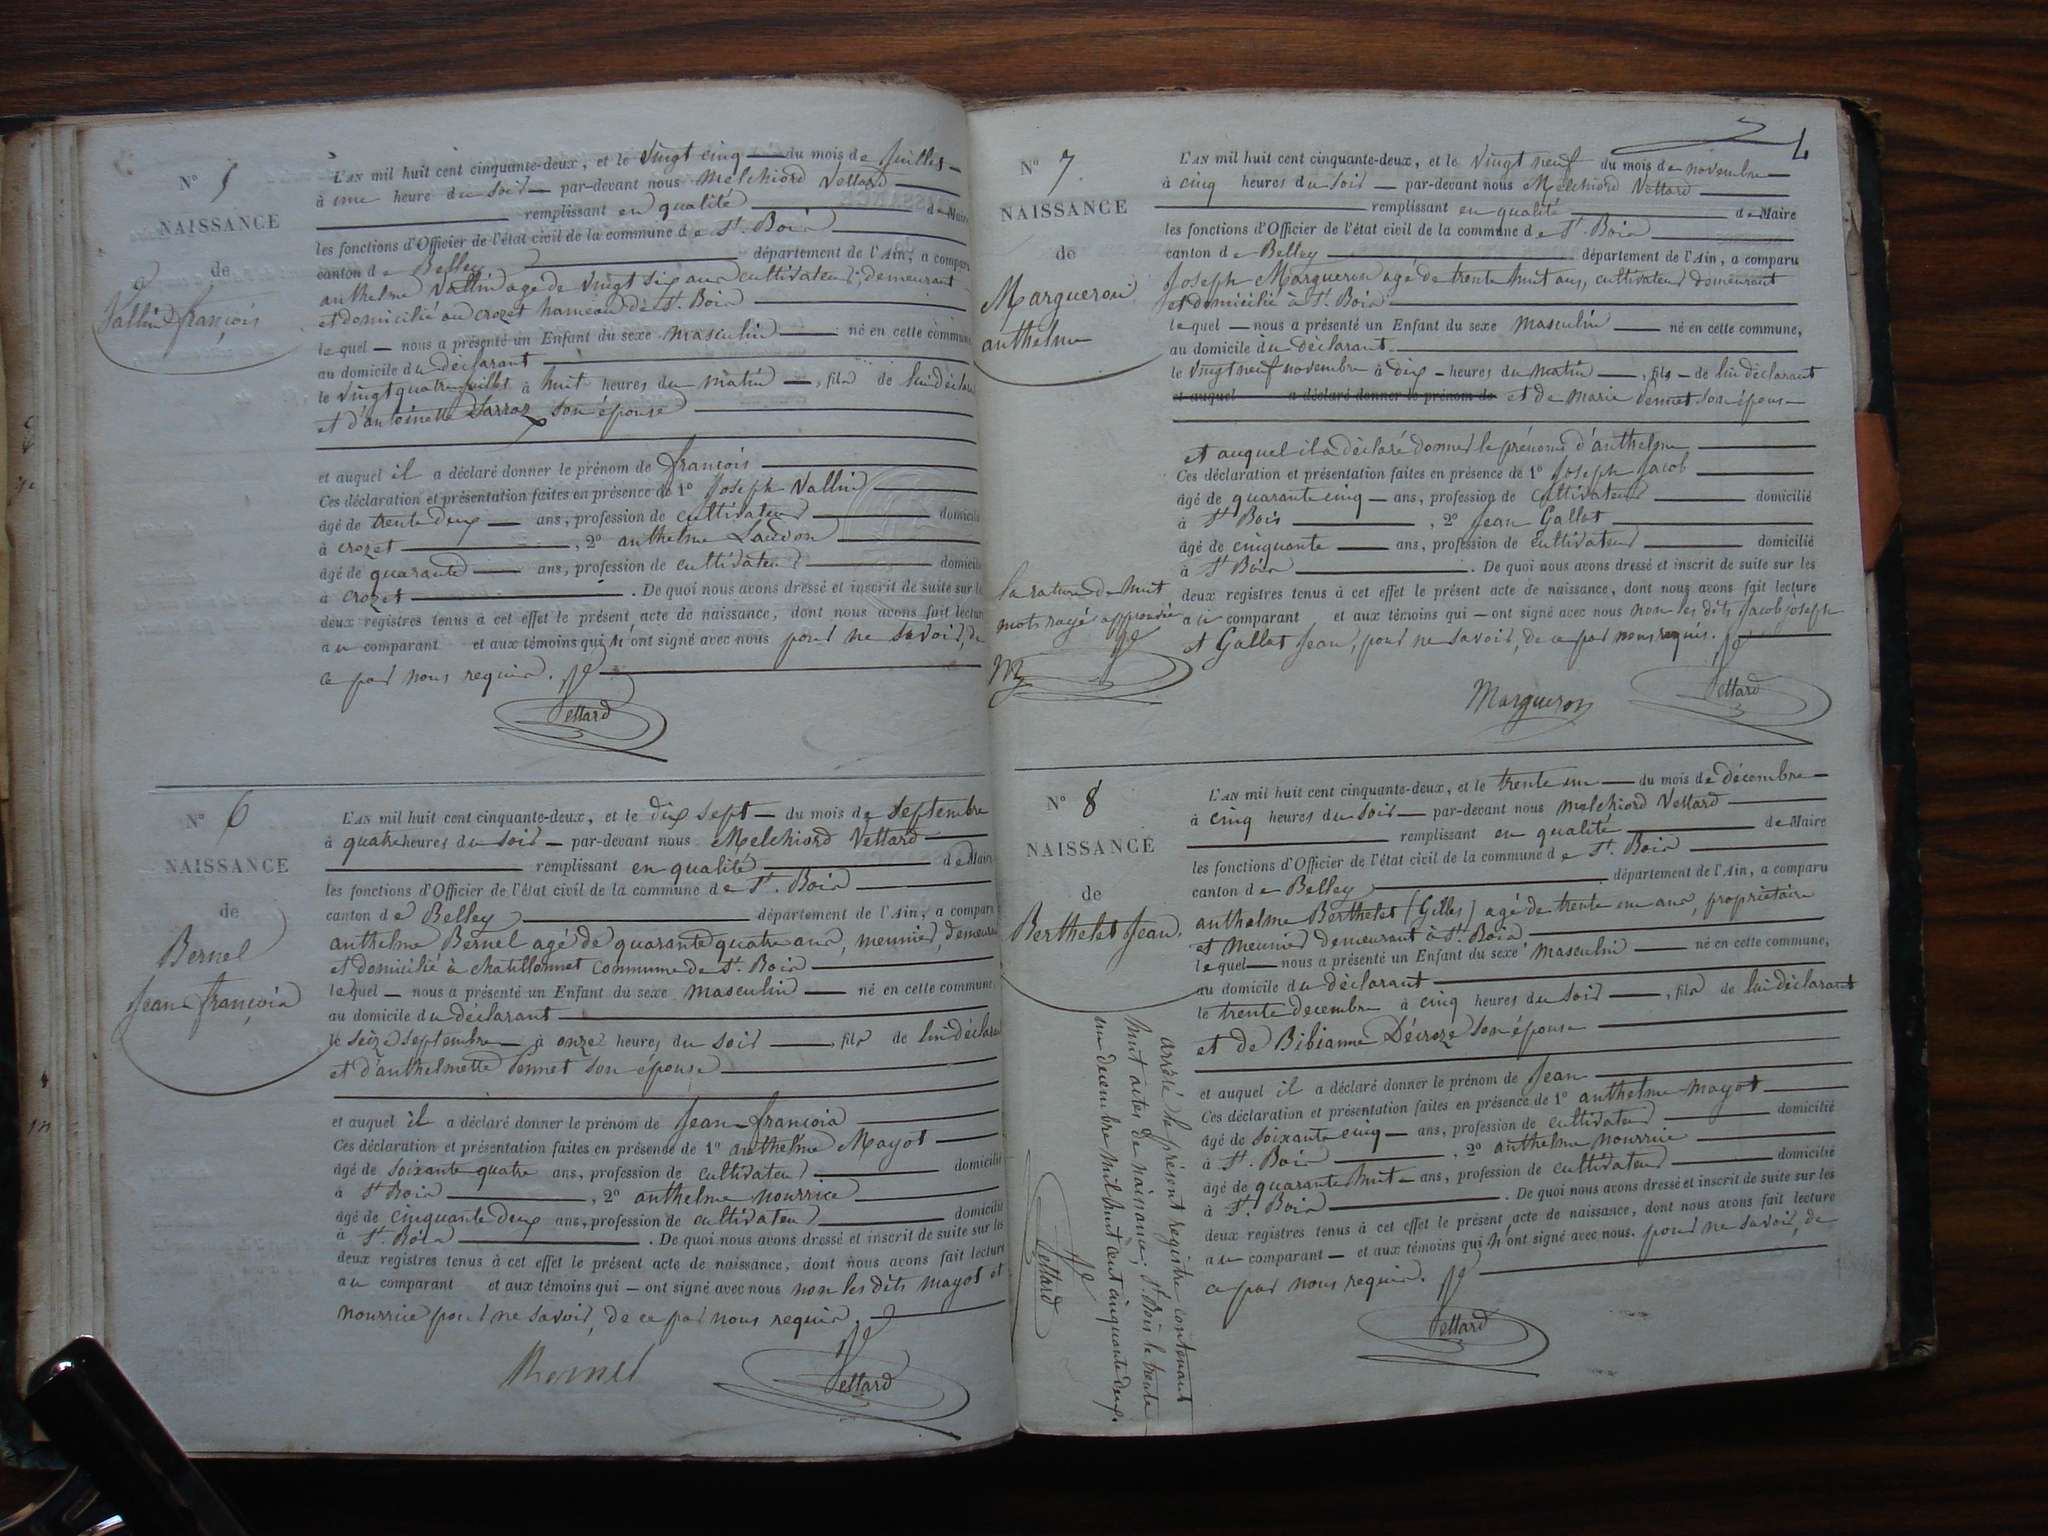 N° 5
NAISSANCE
de
Vallin françois
L'AN mil huit cent cinquante-deux, et le vingt cinq du mois de juillet
à une heure du soir par-devant nous Melchiord Vettard
remplissant en qualité de Maire
les fonctions d'Officier de l'état civil de la commune de St. Bois
canton de Belley département de l'Ain, a comparu
anthelme Vallin agé de vingt six ans cultivateur, demeurant
et domicilié au crozet hameau de St. Bois
lequel nous a présenté un Enfant du sexe masculin né en cette commune
au domicile du déclarant
le vingt quatre juillet à huit heures du matin, fils de lui déclarant
et d'antoinette Sarraz son épouse
et auquel il a déclaré donner le prénom de françois
Ces déclaration et présentation faites en présence de 1° Joseph Vallin
âgé de trente deux ans, profession de cultivateur domicilié
à crozet, 2° anthelme Laudon
âgé de quarante ans, profession de cultivateur domicilié
à crozet. De quoi nous avons dressé et inscrit de suite sur les
deux registres tenus à cet effet le présent acte de naissance, dont nous avons fait lecture
au comparant et aux témoins qui n'ont signé avec nous pour ne savoir, de
ce par nous requis.
Vettard
N° 6
NAISSANCE
de
Bernel
Jean-françois
L'AN mil huit cent cinquante-deux, et le dix sept du mois de septembre
à quatre heures du soir par-devant nous Melchiord Vettard
remplissant en qualité de Maire
les fonctions d'Officier de l'état civil de la commune de St. Bois
canton de Belley département de l'Ain, a comparu
anthelme Bernel agé de quarante quatre ans, meunier, demeurant
et domicilié à chatillonnet commune de St. Bois
lequel nous a présenté un Enfant du sexe masculin né en cette commune,
au domicile du déclarant
le seize septembre à onze heures du soir, fils de lui déclarant
et d'anthelmette Pennet son épouse
et auquel il a déclaré donner le prénom de Jean-françois
Ces déclaration et présentation faites en présence de 1° anthelme Mayot
âgé de soixante quatre ans, profession de cultivateur domicilié
à St Bois, 2° anthelme nourrice
âgé de cinquante deux ans, profession de cultivateur domicilié
à St. Bois. De quoi nous avons dressé et inscrit de suite sur les
deux registres tenus à cet effet le présent acte de naissance, dont nous avons fait lecture
au comparant et aux témoins qui ont signé avec nous non les dits mayot et
nourrice pour ne savoir, de ce par nous requis.
Bernel Vettard
4
N° 7
NAISSANCE
de
Margueron
anthelme
L'AN mil huit cent cinquante-deux, et le vingt neuf du mois de novembre
à cinq heures du soir par-devant nous Melchiord Vettard
remplissant en qualité de Maire
les fonctions d'Officier de l'état civil de la commune de St. Bois
canton de Belley département de l'Ain, a comparu
Joseph Margueron agé de trente huit ans, cultivateur demeurant
et domicilié à St. Bois
lequel nous a présenté un Enfant du sexe masculin né en cette commune,
au domicile du déclarant
le vingt neuf novembre à dix heures du matin, fils de lui déclarant
et auquel a déclaré donner le prénom de et de marie Pennet son épouse
et auquel il a déclaré donner le prénoms d'anthelme
Ces déclaration et présentation faites en présence de 1° Joseph Jacob
âgé de quarante cinq ans, profession de cultivateur domicilié
à St Bois, 2° Jean Gallot
âgé de cinquante ans, profession de cultivateur domicilié
à St Bois. De quoi nous avons dressé et inscrit de suite sur les
deux registres tenus à cet effet le présent acte de naissance, dont nous avons fait lecture
au comparant et aux témoins qui ont signé avec nous non les dits Jacob joseph
et Gallot Jean, pour ne savoir, de ce par nous requis.
la rature de huit
mots rayés approuvée
Margueron Vettard
N° 8
NAISSANCE
de
Berthelet Jean
L'AN mil huit cent cinquante-deux, et le trente un du mois de décembre
à cinq heures du soir par-devant nous melchiord Vettard
remplissant en qualité de Maire
les fonctions d'Officier de l'état civil de la commune de St. Bois
canton de Belley département de l'Ain, a comparu
anthelme Berthelet (Gilles) agé de trente un ans, propriétaire
et meunier demeurant à St. Bois
lequel nous a présenté un Enfant du sexe masculin né en cette commune,
au domicile du déclarant
le trente decembre à cinq heures du soir, fils de lui déclarant
et de Bibianne Décroze son épouse
et auquel il a déclaré donner le prénom de Jean
Ces déclaration et présentation faites en présence de 1° anthelme mayot
âgé de soixante cinq ans, profession de cultivateur domicilié
à St. Bois, 2° anthelme nourrice
âgé de quarante huit ans, profession de cultivateur domicilié
à St. Bois. De quoi nous avons dressé et inscrit de suite sur les
deux registres tenus à cet effet le présent acte de naissance, dont nous avons fait lecture
au comparant et aux témoins qui n'ont signé avec nous. pour ne savoir, de
ce par nous requis.
Vettard
arrêté le présent registre contenant
huit actes de naissance, St. Bois le trente
un decembre mil huit cent cinquante deux.
Vettard